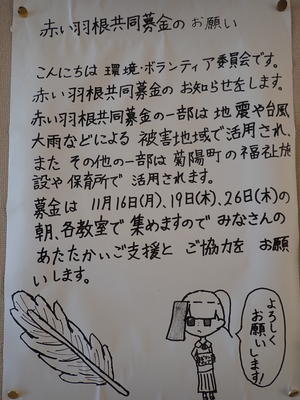 赤い羽根共同募金の お願い
こんにちは 環境・ボランティア委員会です。
赤い羽根共同募金の お知らせをします。
赤い羽根共同募金の一部は 地震や台風、
大雨などによる 被害地域で活用され、
また その他の一部は 菊陽町の福祉施
設や保育所で 活用されます。
募金は 11月16日(月)、19日(木)、26日(木)の
朝、各教室で 集めますので みなさんの
あたたかいご支援と ご協力を お願
いします。
よろしく
お願い
します!